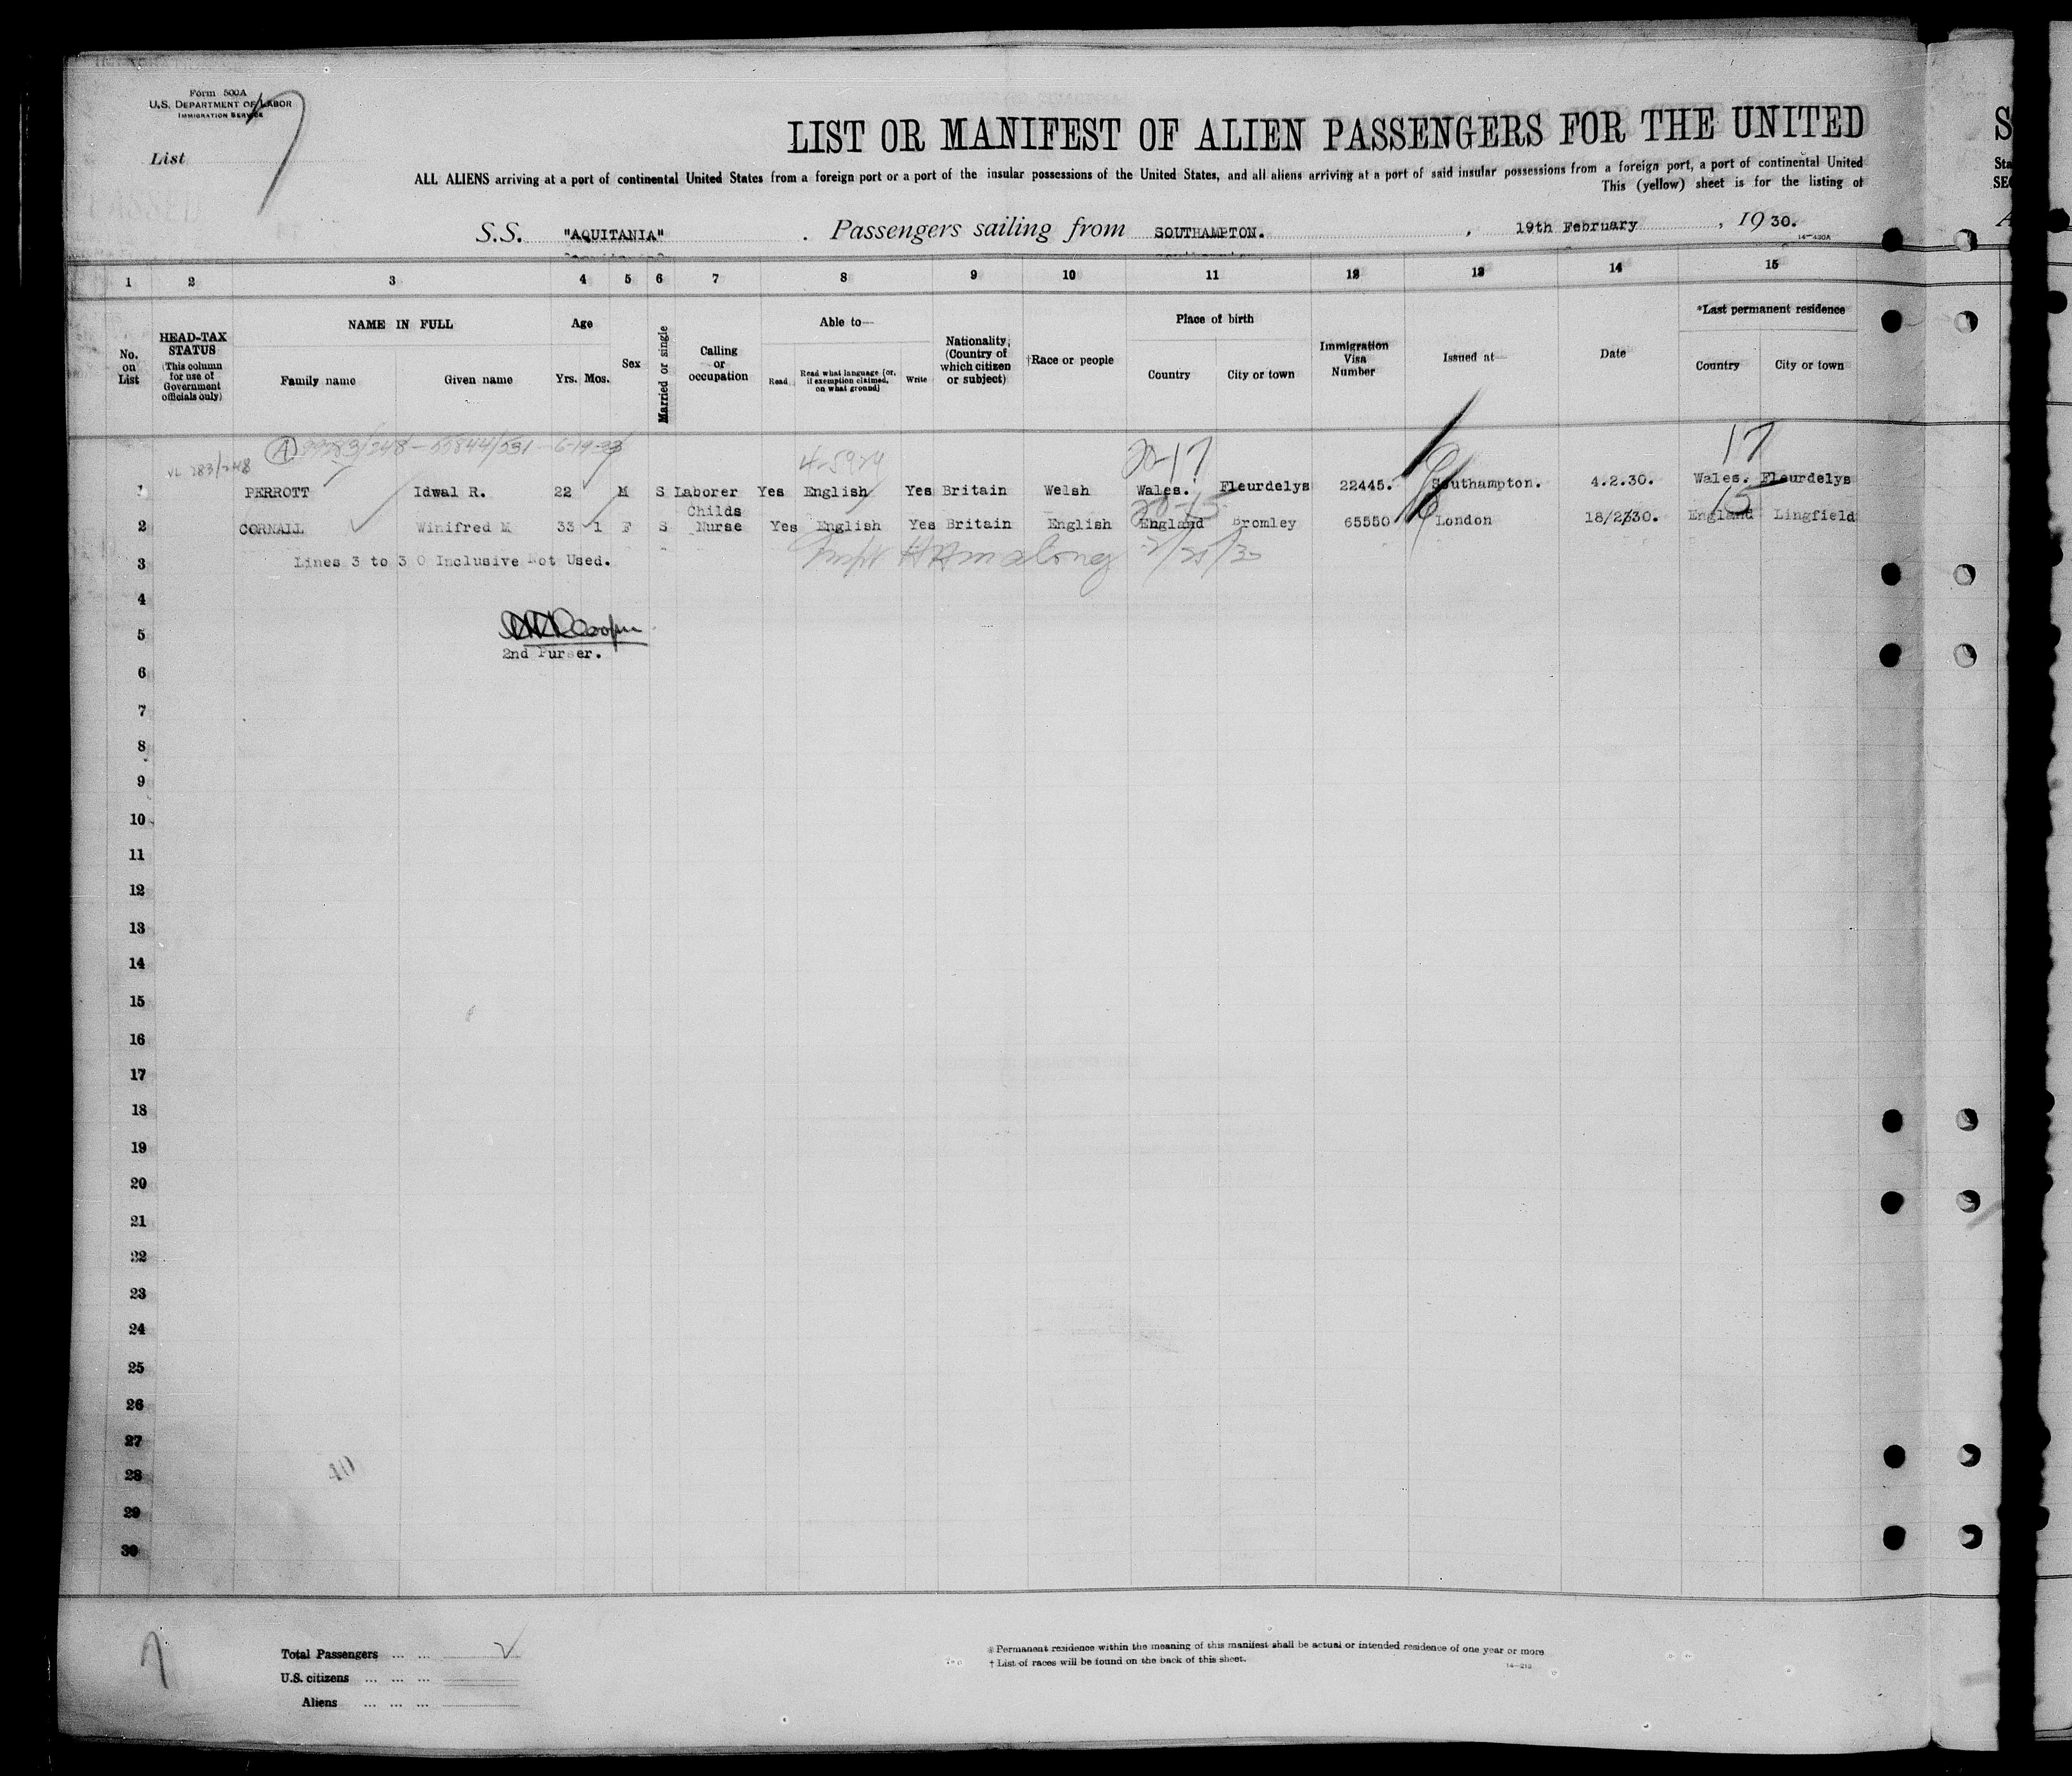 Form 500A
U.S. DEPARTMENT OF LABOR
IMMIGRATION SERVICE
List 7
LIST OR MANIFEST OF ALIEN PASSENGERS FOR THE UNITED
ALL ALIENS arriving at a port of continental United States from a foreign port or a port of the insular possessions of the United States, and all aliens arriving at a port of said insular possessions from a foreign port, a port of continental United
This (yellow) sheet is for the listing of
S.S. "AQUITANIA" . Passengers sailing from SOUTHAMPTON. , 19th February , 19 30.
14-430A
1 2 3 4 5 6 7 8 9 10 11 12 13 14 15
No. on List
HEAD-TAX STATUS (This column for use of Government officials only)
NAME IN FULL
Family name Given name
Age
Yrs. Mos.
Sex
Married or single
Calling or occupation
Able to—
Read Read what language (or, if exemption claimed, on what ground) Write
Nationality, (Country of which citizen or subject)
†Race or people
Place of birth
Country City or town
Immigration Visa Number
Issued at—
Date
*Last permanent residence
Country City or town
20-17 17
1 PERROTT Idwal R. 22 M S Laborer Yes English Yes Britain Welsh Wales. Fleurdelys 22445. Southampton. 4.2.30. Wales. Fleurdelys
20-15 15
2 CORNALL Winifred M 33 1 F S Childs Nurse Yes English Yes Britain English England Bromley 65550 London 18/2/30. England Lingfield
3 Lines 3 to 30 Inclusive Not Used.
4
5
2nd Purser.
6
7
8
9
10
11
12
13
14
15
16
17
18
19
20
21
22
23
24
25
26
27
28
29
30
Total Passengers ... ...
U.S. citizens ... ... ...
Aliens ... ... ...
* Permanent residence within the meaning of this manifest shall be actual or intended residence of one year or more
† List of races will be found on the back of this sheet.
14-213